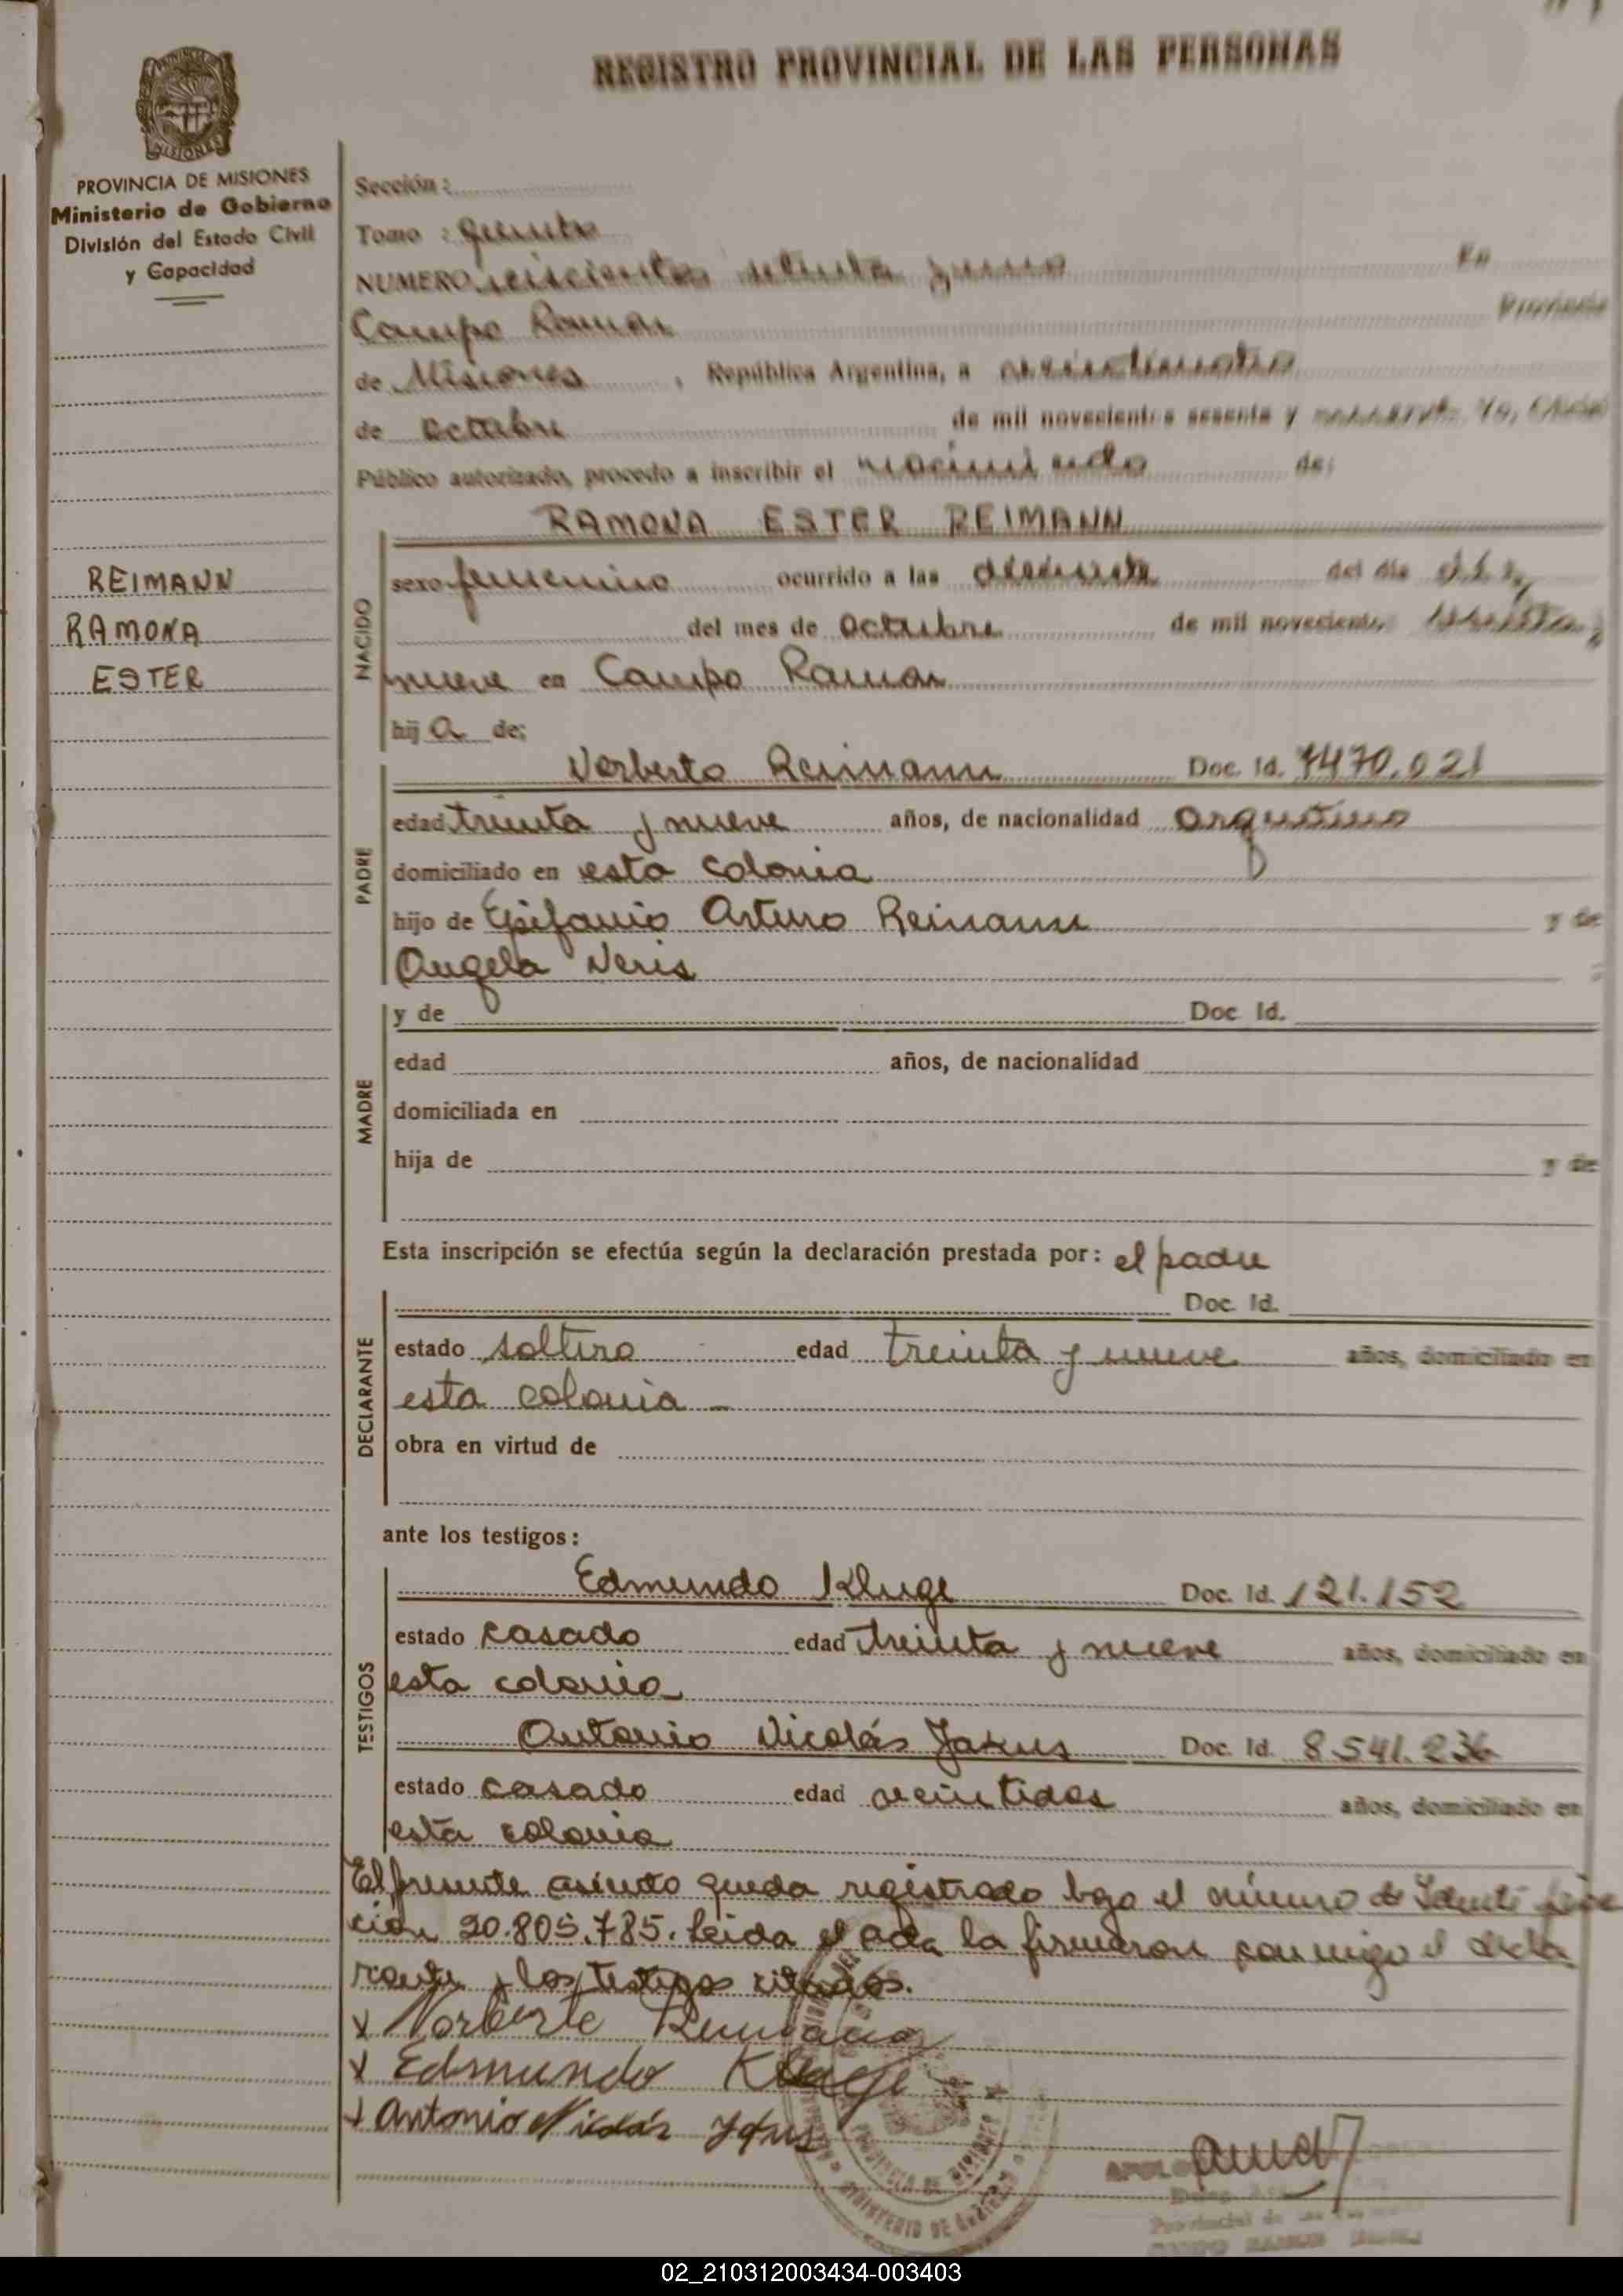 REGISTRO PROVINCIAL DE LAS PERSONAS
PROVINCIA DE MISIONES
Ministerio de Gobierno
División del Estado Civil
y Capacidad
Sección:
Tomo : Quinto
NUMERO seiscientos setenta y uno En
Campo Ramón Provincia
de Misiones , República Argentina, a veinticuatro
de octubre de mil novecientos sesenta y nueve Yo, Oficial
Público autorizado, procedo a inscribir el nacimiento de:
RAMONA ESTER REIMANN
REIMANN
RAMONA
ESTER
NACIDO
sexo femenino ocurrido a las del día
del mes de octubre de mil novecientos sesenta y
nueve en Campo Ramón
hij a de:
PADRE
Norberto Reimann Doc. Id. 7470.021
edad treinta y nueve años, de nacionalidad argentino
domiciliado en esta colonia
hijo de Epifanio Arturo Reimann y de
Angela Neris
MADRE
y de Doc. Id.
edad años, de nacionalidad
domiciliada en
hija de y de
Esta inscripción se efectúa según la declaración prestada por: el padre
DECLARANTE
Doc. Id.
estado soltero edad treinta y nueve años, domiciliado en
esta colonia
obra en virtud de
ante los testigos:
TESTIGOS
Edmundo Kluge Doc. Id. 121.152
estado casado edad treinta y nueve años, domiciliado en
esta colonia
Antonio Nicolás Jakus Doc. Id. 8.541.236
estado casado edad veintidos años, domiciliado en
esta colonia
El presente asiento queda registrado bajo el número de Identifica
ción 20.805.785. Leida el acta la firmaron conmigo el decla
rante y los testigos citados.
x Norberto Reimann
x Edmundo Kluge
x Antonio Nicolás Jakus
PROVINCIA DE MISIONES
MINISTERIO DE GOBIERNO
Provincial de las
02_210312003434-003403